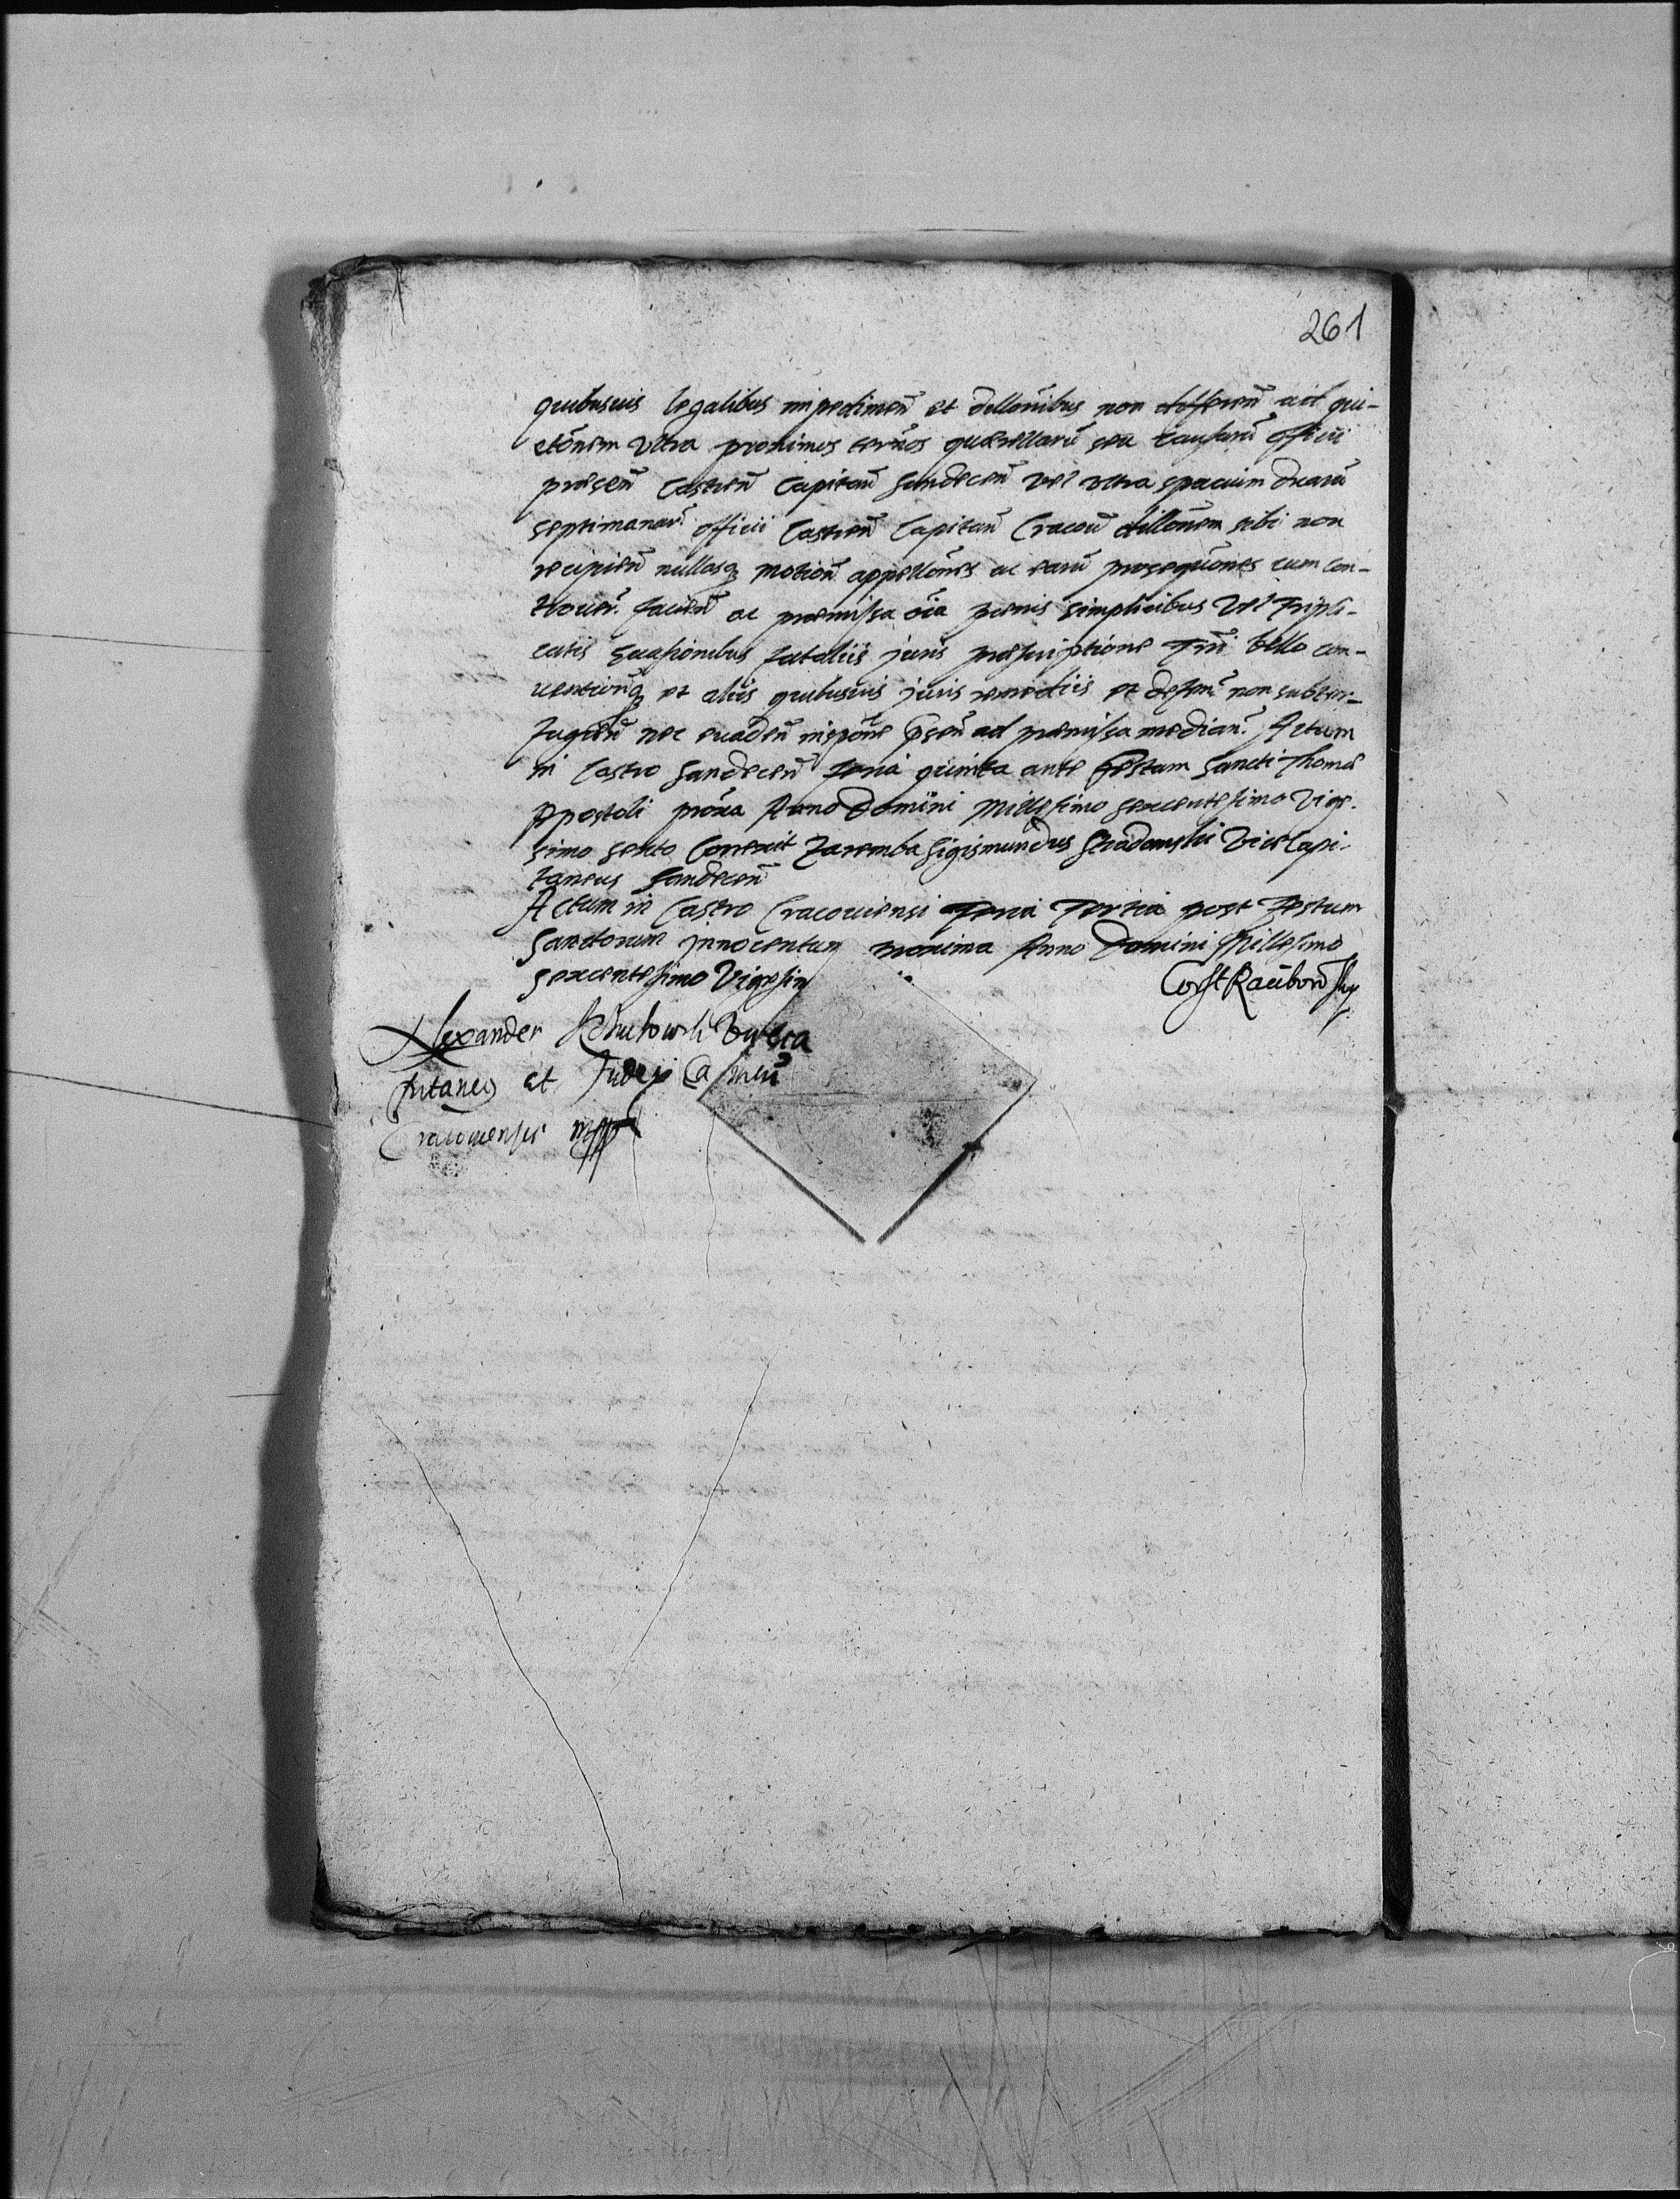 261
quibusuis legalibus impedimen̄ et dillōnibus non differen̄ ad qui-
etōnem vltra proximos termōs quærellarū seu causarū officii
præsen̄ Castren̄ Capitan̄ Sandecen̄ vel vltra spacium duarū
septimanarū officii Castren̄ Capitan̄ Cracou̅ dillōnem sibi non
recipien̄ nullasq motion̄ appellōnes ac earū prosequōnes cum con-
trouer. facien̄ ac præmissa oīa pænis simplicibus vel tripli-
catis euasionibus fataliis juris præscriptione bello con-
uentionēq et aliis quibusuis juris remediis et defens non subter-
fugien̄ nec euaden̄ ad præmissa median. Actum
in Castro Sandecen̄ feria quinta ante festum Sancti Thomæ
Apostoli proxa Anno Domini Millesimo sexcentesimo vige-
simo sexto Correxit Zaremba Sigismundus Stradomski Vice Capi-
taneus Sandecen̄
Actum in Castro Cracouiensi feria Tertia post festum
Sanctorum jnnocentum proxima Anno Domini Millesimo
sexcentesimo Vigesim
Alexander
pitaneus et Judex Castren̄
Cracouiensis mpp